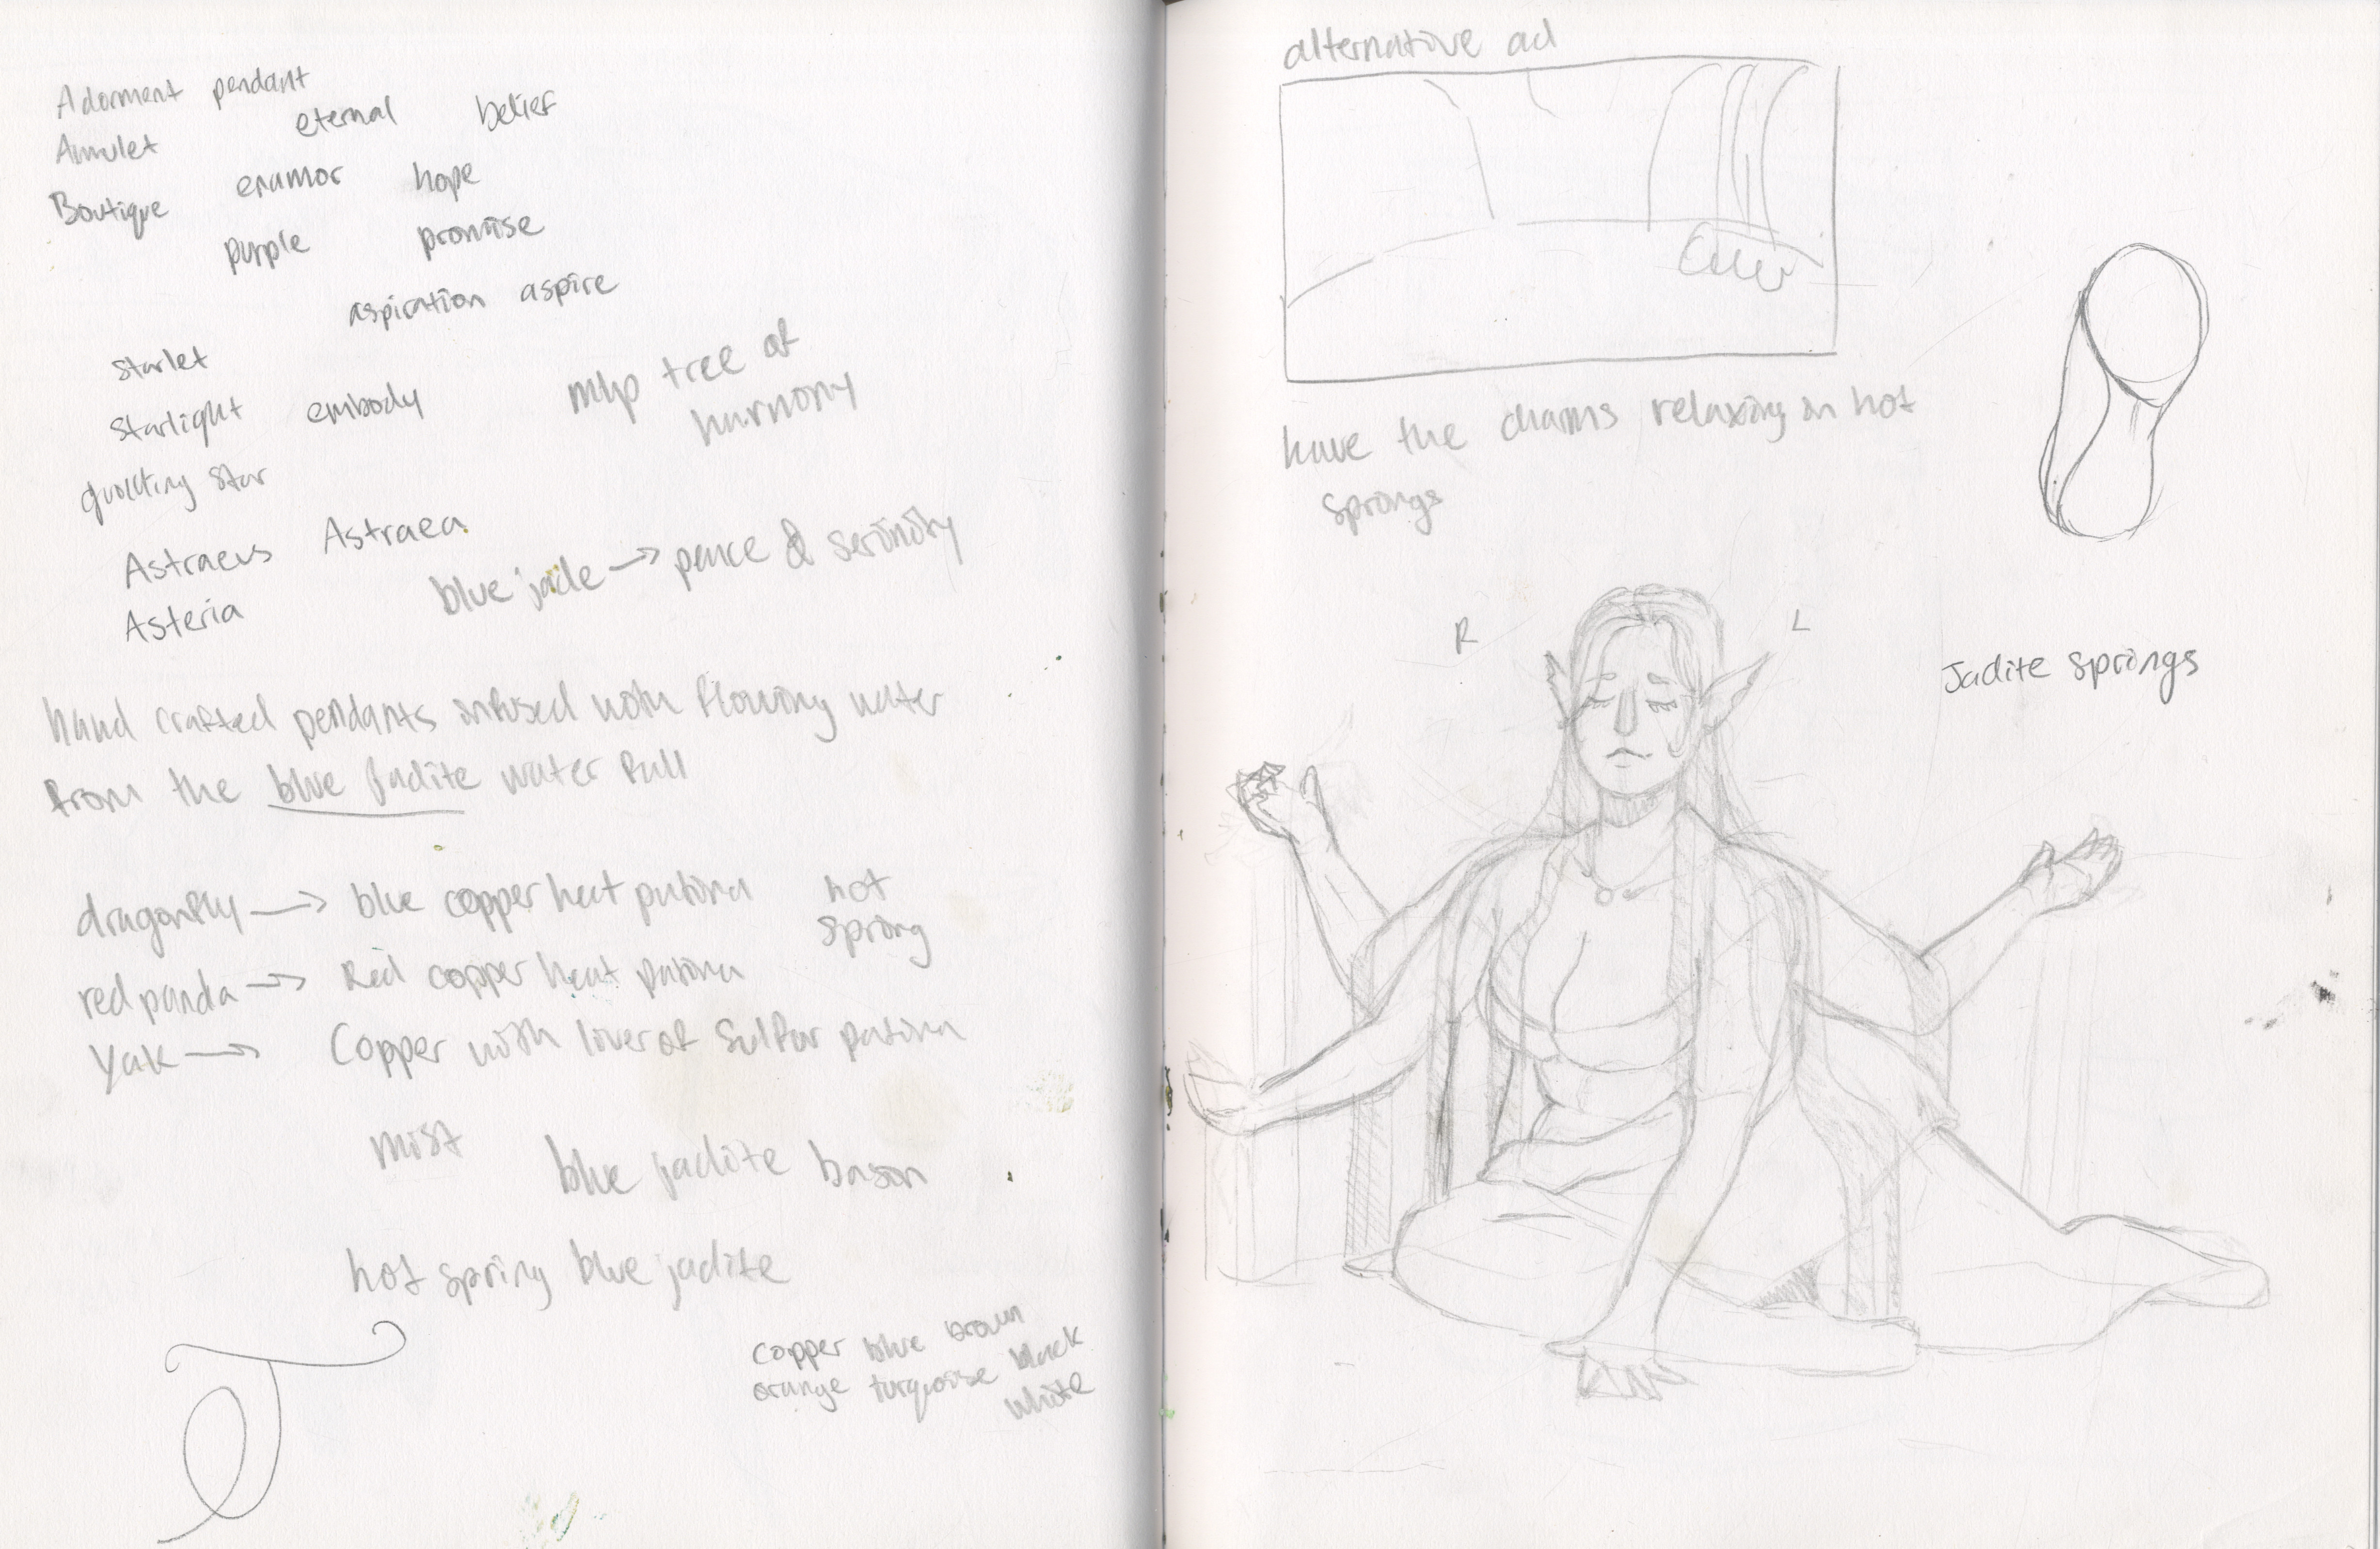 Adorment pendant
Amulet eternal belief
Boutique enamor hope
purple promise
aspiration aspire
starlet
starlight embody
star
mhp tree of
harmony
Astraeus Astraea
Asteria
blue jade → peace & serinity
hand crafted pendants infused with flowing water
from the blue jadite water fall
dragonfly → blue copper heat patina
hot
spring
red panda → Red copper heat patina
Yak → Copper with liver of Sulfur patina
mist
blue jadite bason
hot spring blue jadite
copper blue brown
orange turquoise black
white
alternative ad
have the charms relaxing in hot
springs
R L
Jadite springs